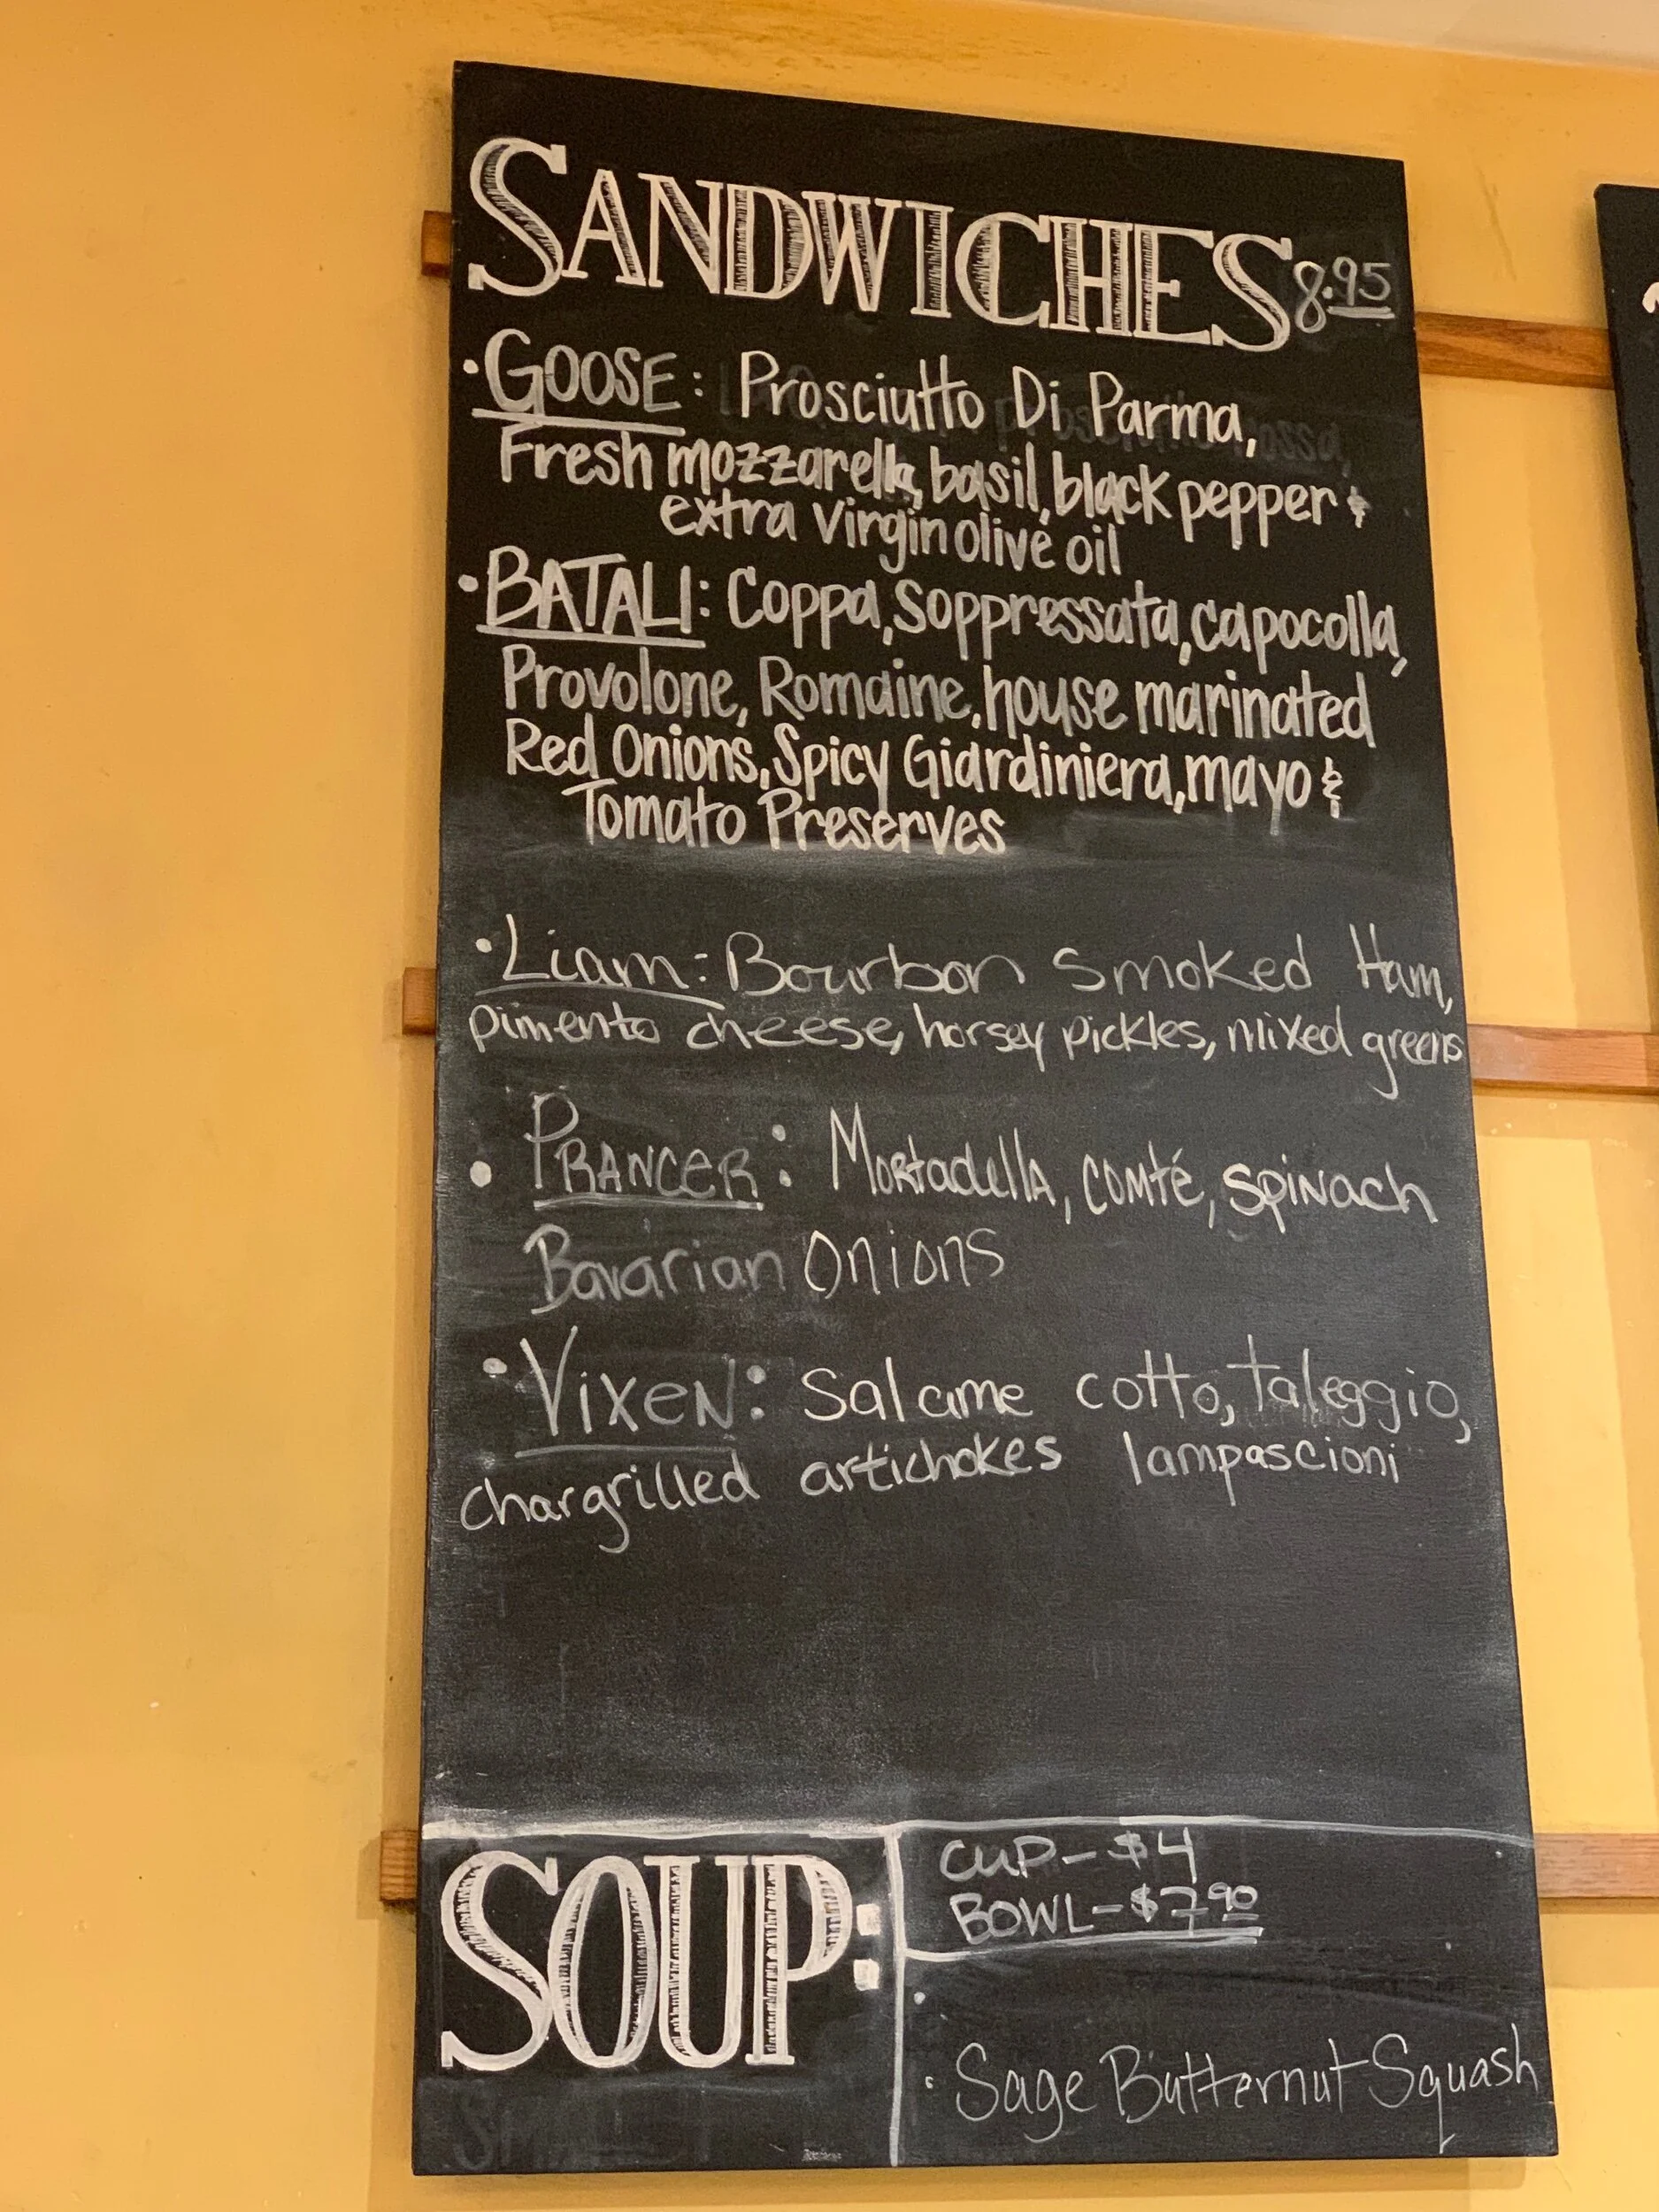 SANDWICHES 8.95
• GOOSE: Prosciutto Di Parma,
Fresh mozzarella, basil, black pepper &
extra virgin olive oil
• BATALI: Coppa, Soppressata, capocolla,
Provolone, Romaine, house marinated
Red Onions, Spicy Giardiniera, mayo &
Tomato Preserves
• Liam: Bourbon Smoked Ham,
pimento cheese, horsey pickles, mixed greens
• PRANCER: Mortadella, comté, spinach
Bavarian Onions
• Vixen: Salame cotto, taleggio,
chargrilled artichokes lampascioni
SOUP:
CUP - $4
BOWL - $7.90
•
• Sage Butternut Squash